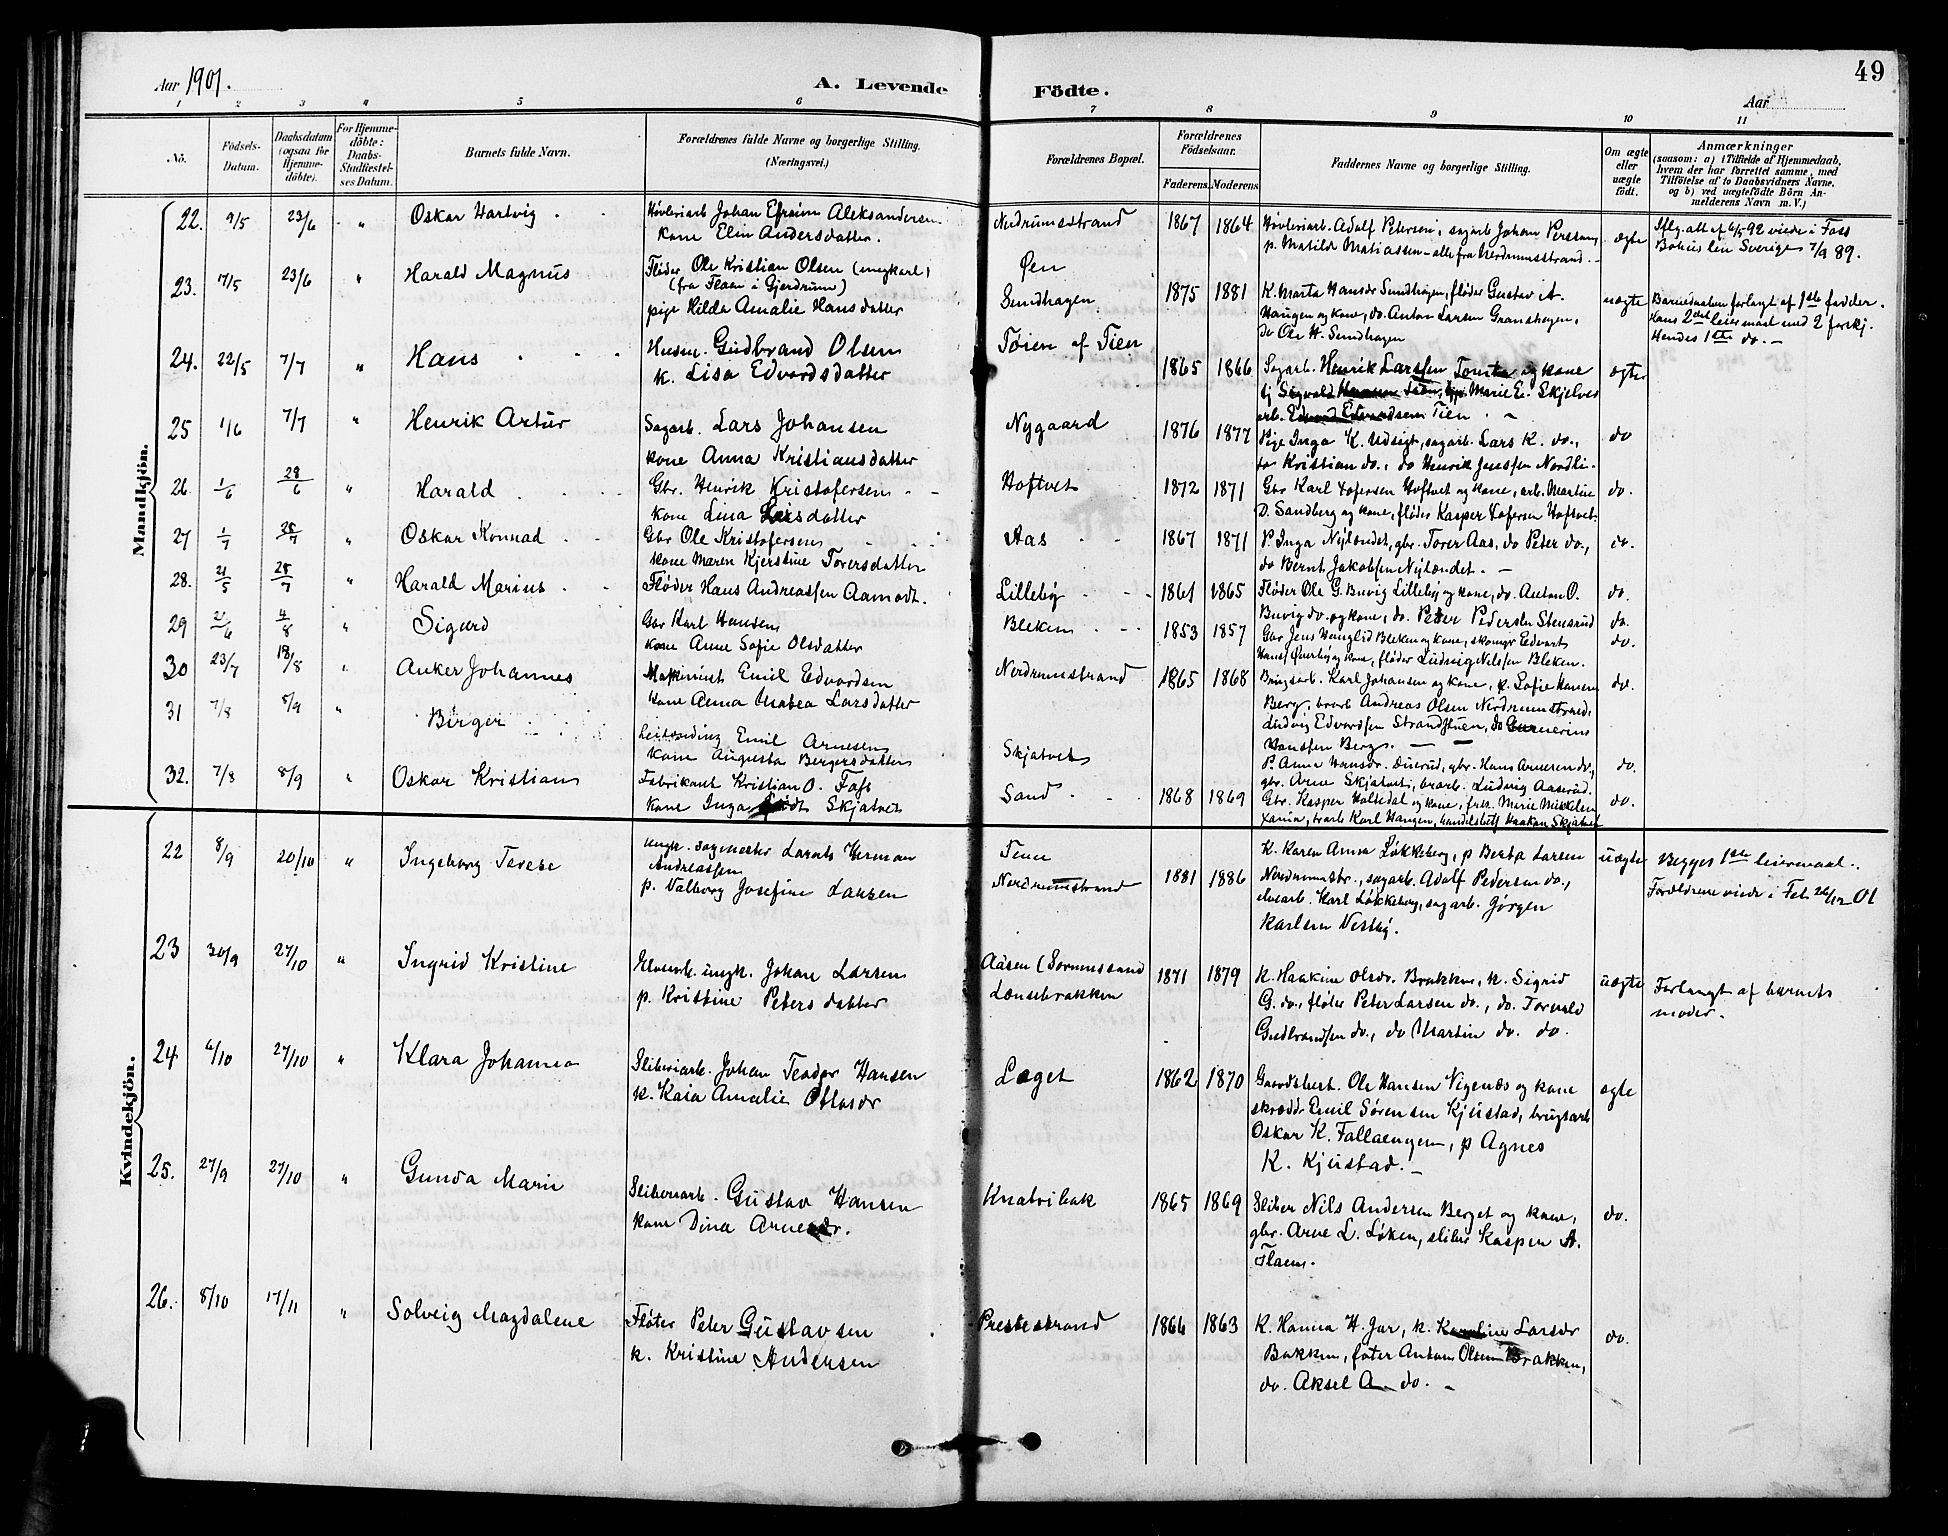 49
Aar 1901.
A. Levende Födte.
Aar
1 2 3 4 5 6 7 8 9 10 11
No.
Födsels-Datum.
Daabsdatum (ogsaa for Hjemme-döbte).
For Hjemme-döbte: Daabs-Stadfæstel-ses Datum.
Barnets fulde Navn.
Forældrenes fulde Navne og borgerlige Stilling. (Næringsvei.)
Forældrenes Bopæl.
Forældrenes Födselsaar.
Faderens. Moderens.
Faddernes Navne og borgerlige Stilling.
Om ægte eller uægte födt.
Anmærkninger
(saasom: a) i Tilfælde af Hjemmedaab, hvem der har forrettet samme, med Tilföielse af to Daabsvidners Navne, og b) ved uægtefödte Börn An-melderens Navn m. V.)
Mandkjön.
22. 9/5 23/6 " Oskar Hartvig
Høvleriarb Johan Efraim Aleksandersen
kone Elin Andersdatter.
Nerdrumsstrand 1867 1864
Høvleriarb. Adolf Petersen, sagarb Johan Persson,
p. Matilde Matiassen - alle fra Nerdrumsstrand. -
ægte
Iflg. att af 6/5-92 viede i Foss
Bohus len Sverige 7/9 89.
23. 17/5 23/6 " Harald Magnus
Fløder Ole Kristian Olsen (ungkarl)
(fra Flaan i Gjerdrum)
pige Hilda Amalie Hansdatter
Øen
Sundhagen 1875 1881
K. Marta Hansdr Sundhagen, fløder Gustav A.
Haugen og kone, do. Anton Larsen Granshagen,
do Ole H. Sundhagen
uægte
Barnedaaben forlangt af 1ste fadder.
Hans 2det leiermaal med 2 forskj.
Hendes 1ste do. -
24. 22/5 7/7 " Hans
Husm. Gudbrand Olsen
k. Lisa Edvardsdatter
Tøien af Tien 1865 1866
Sagarb. Henrik Larssen Tomta og kone
Marie E. Skjelves
arb. Edvardsen Tien. -
ægte
25 1/6 7/7 " Henrik Artur
Sagarb. Lars Johansen
kone Anna Kristiansdatter
Nygaard 1876 1877
Pige Inga K. Udsigt, sagarb. Lars K. do.,
Kristian do., do Henrik Jenssen Nordli.
do
26. 1/6 28/6 " Harald
Gbr. Henrik Kristofersen
kone Lina Larsdatter
Hoftvet 1872 1871
Gbr Karl Xofersen Hoftvet og kone, arb. Martin
D. Sandberg og kone, fløder Kasper Xofersen Hoftvet.
do.
27 1/7 28/7 " Oskar Konrad
Gbr Ole Kristofersen
kone Maren Kjerstine Torersdatter
Aas 1867 1871
P. Inga Nylændet, gbr. Torer Aas, do Peter do.,
do Bernt Jakobsen Nylændet. -
do.
28. 21/5 28/7 " Harald Marius
Fløder Hans Andreassen Aamodt.
Lilleby 1861 1865
Fløder Ole G. Buvig Lilleby og kone, do. Anton O.
Buvig do. og kone, do. Peter Pedersen Stensrud
do.
29 21/6 4/8 " Sigurd
Gbr Karl Hansen
kone Anne Sofie Olsdatter
Bleken 1853 1857
Gbr Jens Hanglid Bleken og kone, skomgr Edvart
Hanss Øverby og kone, fløder Ludvig Nilssen Bleken.
do.
do.
30 23/7 18/8 " Anker Johannes
Maskinist Emil Edvardsen
kone Anna Mabea Larsdatter
Nerdrumstrand 1865 1868
Brugsarb. Karl Johansen og kone, p. Sofie Hansen
Berg, brarb Andreas Olsen Nerdrumstrand,
Ludvig Edvardsen Strandstuen, do Gunerius
Hanssen Berg. -
do.
31 7/8 8/9 " Birger
Emil Arnesen
kone Augusta Bergersdatter
Skjatvet
P. Anna Hansdr. Duerud, gbr. Hans Arnesen do.,
gbr. Arne Skjatvet, brarb. Ludvig Aaserud.
do.
32. 7/8 8/9 " Oskar Kristian
Fabrikant Kristian O. Foss
kone Inga født Skjatvet
Sand 1868 1869
Gbr. Kasper Holtedal og kone, frk. Marie Mikkelsen
Xania, brarb Karl Haugen, handelsbetj Haakon Skjatvet
do.
Kvindekjön.
22 8/9 20/10 " Ingeborg Terese
ungk. sagmester Laurits Herman
Andreassen
p. Valborg Josefine Larsen
Tien
Nerdrumstrand 1881 1886
K. Karen Anna Løkkeberg, p Berta Larsen
Nerdrumstr., sagarb. Adolf Pedersen do.,
elvearb. Karl Løkkeberg, sagarb. Jørgen
Karlsen Nestby.
uægte
Begges 1ste leiermaal.
Forældrene viede i Fet 26/12 01
23 30/9 27/10 " Ingrid Kristine
Elvearb. ungk. Johan Larsen
p. Kristine Petersdatter
Aasen (Sørumssand
Lænsebrakken 1871 1879
K. Haakine Olsdr. Brakken, k. Sigrid
G. do., fløder Peter Larsen do., do. Torvald
Gudbrandsen do., do Martin do. do.
uægte
Forlangt af barnets
moder.
24 6/10 27/10 " Klara Johanna
Sliberiarb. Johan Teodor Hansen
k. Kaia Amalie Ottosdr
Laget 1862 1870
Gaardsbest. Ole Hansen Vigenæs og kone
skrædr. Emil Sørensen Kjustad, brugsarb
Oskar K. Fallaengen, p Agnes
K. Kjustad. -
ægte
25. 27/9 27/10 " Gunda Marie
Sliberiarb. Gustav Hansen
kone Dina Arnesdr.
Knatvibak 1865 1869
Sliber Nils Andersen Berget og kone,
gbr. Arne L. Løken, sliber Kaspen A.
Flaen.
do.
26. 8/10 17/11 " Solveig Magdalene
Fløter Peter Gustavsen
k. Kristine Andersen
Prestestrand 1866 1863
K. Hanna H. Jar, k. Karoline Larsdr
Bakken, fløter Anton Olsen Brakken,
do. Aksel A - do. -
do.